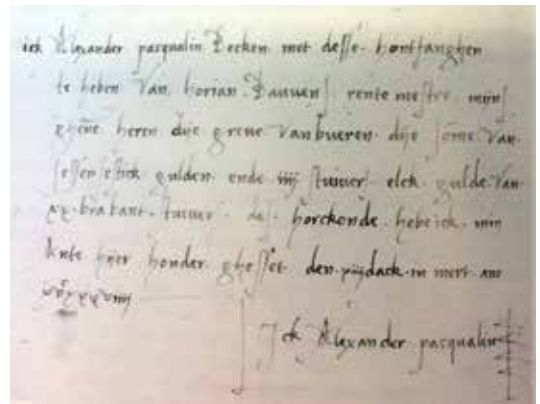 ick Alexander pasqualin becken met desse hontfanghen
te heben van horian Dauuen rente mester mijns
ghene heren dije greue van bueren dije some van
sessen gulden ende iiij stuuer elck gulde van
xx brabant stuuer des horckonde hebe ick min
hnte hier honder ghesset den dack in mert ano
Ick Alexander pasqualin